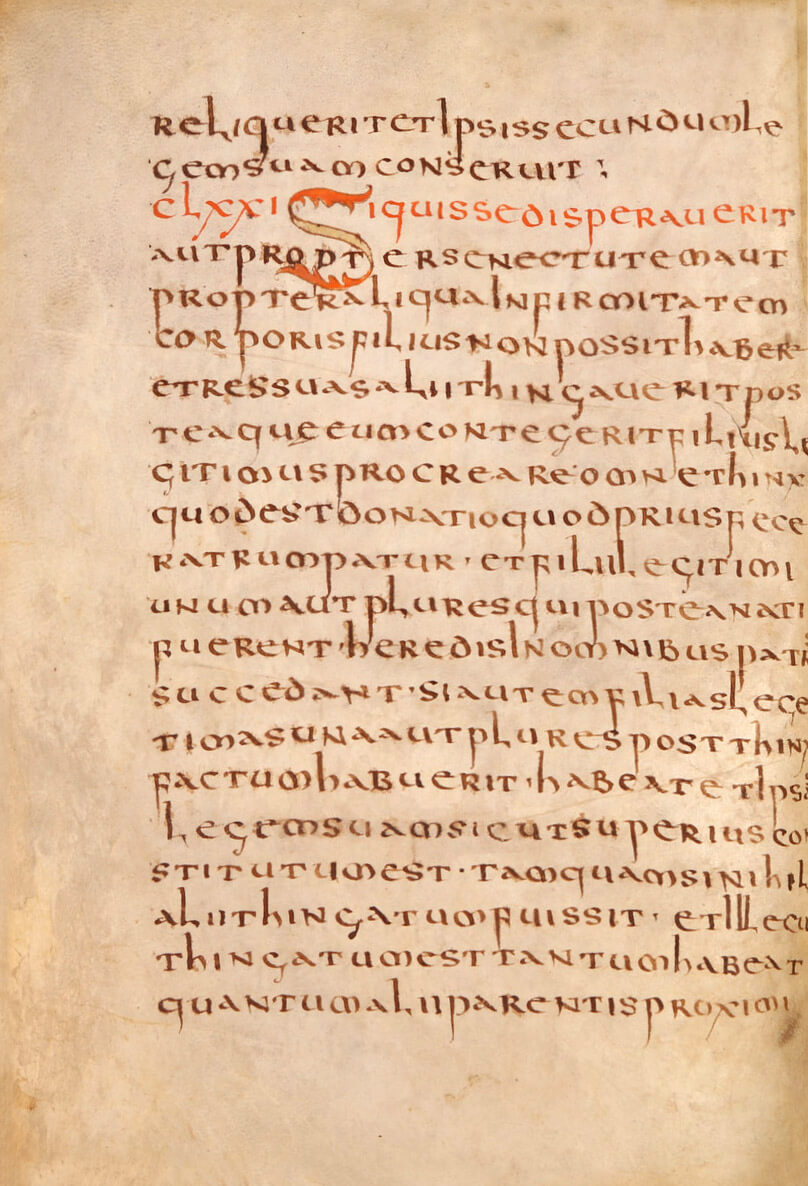 reliquerit et ipsis secundum le
gem suam conseruit ;
clxxi Si quis se disperauerit
aut propter senectutem aut
propter aliqua infirmitatem
corporis filius non possit haber
et res suas alii thingauerit pos
tea que eum contegerit filius le
gitimus procreare omne thinx
quod est donatio quod prius fece
rat rumpatur · et filii legitimi
unum aut plures qui postea nati
fuerent · heredis in omnibus patri
succedant · si autem filias lege
timas una aut plures post thinx
factum habuerit · habeat et ipsi
legem suam sicut superius con
stitutum est · tamquam si nihil
alii thingatum fuissit · et ille cui
thingatum est tantum habeat
quantum alii parentis proximi